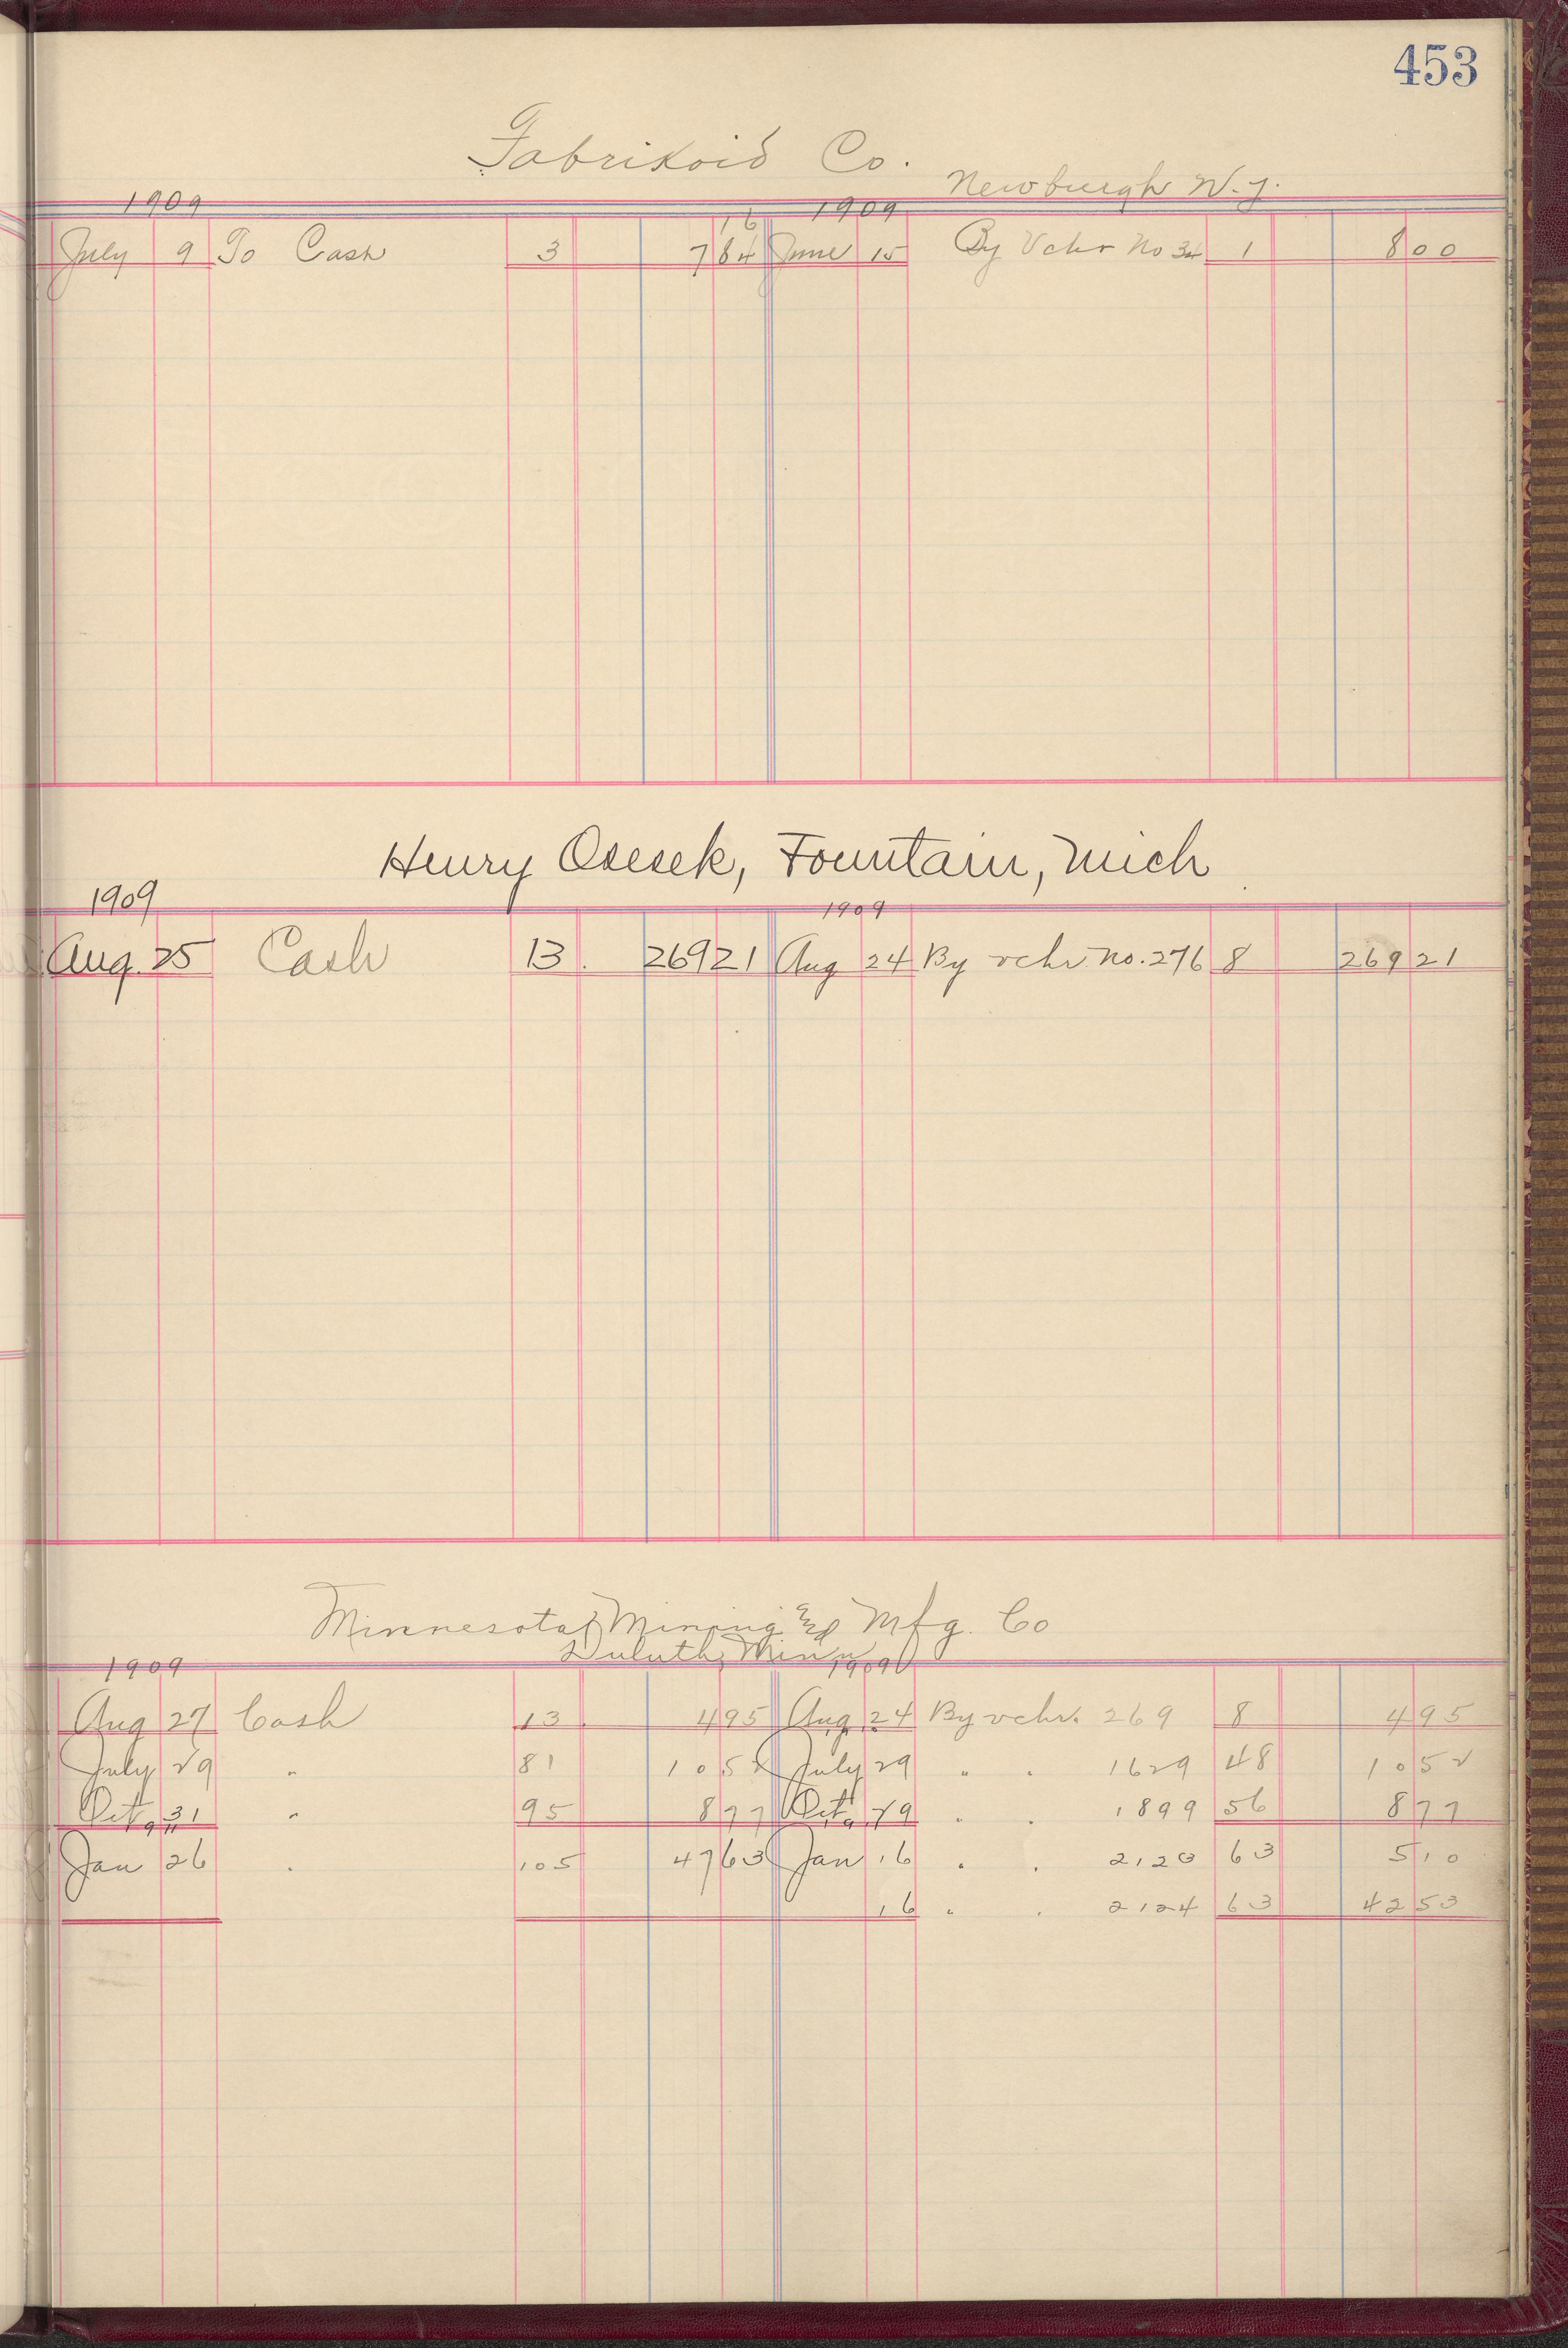 453
Fabrikoid Co.
Newburgh N.Y.
1909 1909
16
July 9 To Cash 3 7 84 June 15 By Vchr No 34 1 8 00
Henry Osesek, Fountain, Mich
1909 1909
Aug. 25 Cash 13 269 21 Aug 24 By vchr. no. 276 8 269 21
Minnesota Mining and Mfg. Co
Duluth, Minn
1909 1909
Aug 27 Cash 13 4 95 Aug 24 By vchr. 269 8 4 95
July 29 " 81 10 52 July 29 " " 1629 48 10 52
Oct 31 " 95 8 77 Oct 19 " " 1899 56 8 77
Jan 26 " 105 47 63 Jan 16 " " 2123 63 5 10
16 " " 2124 63 42 53